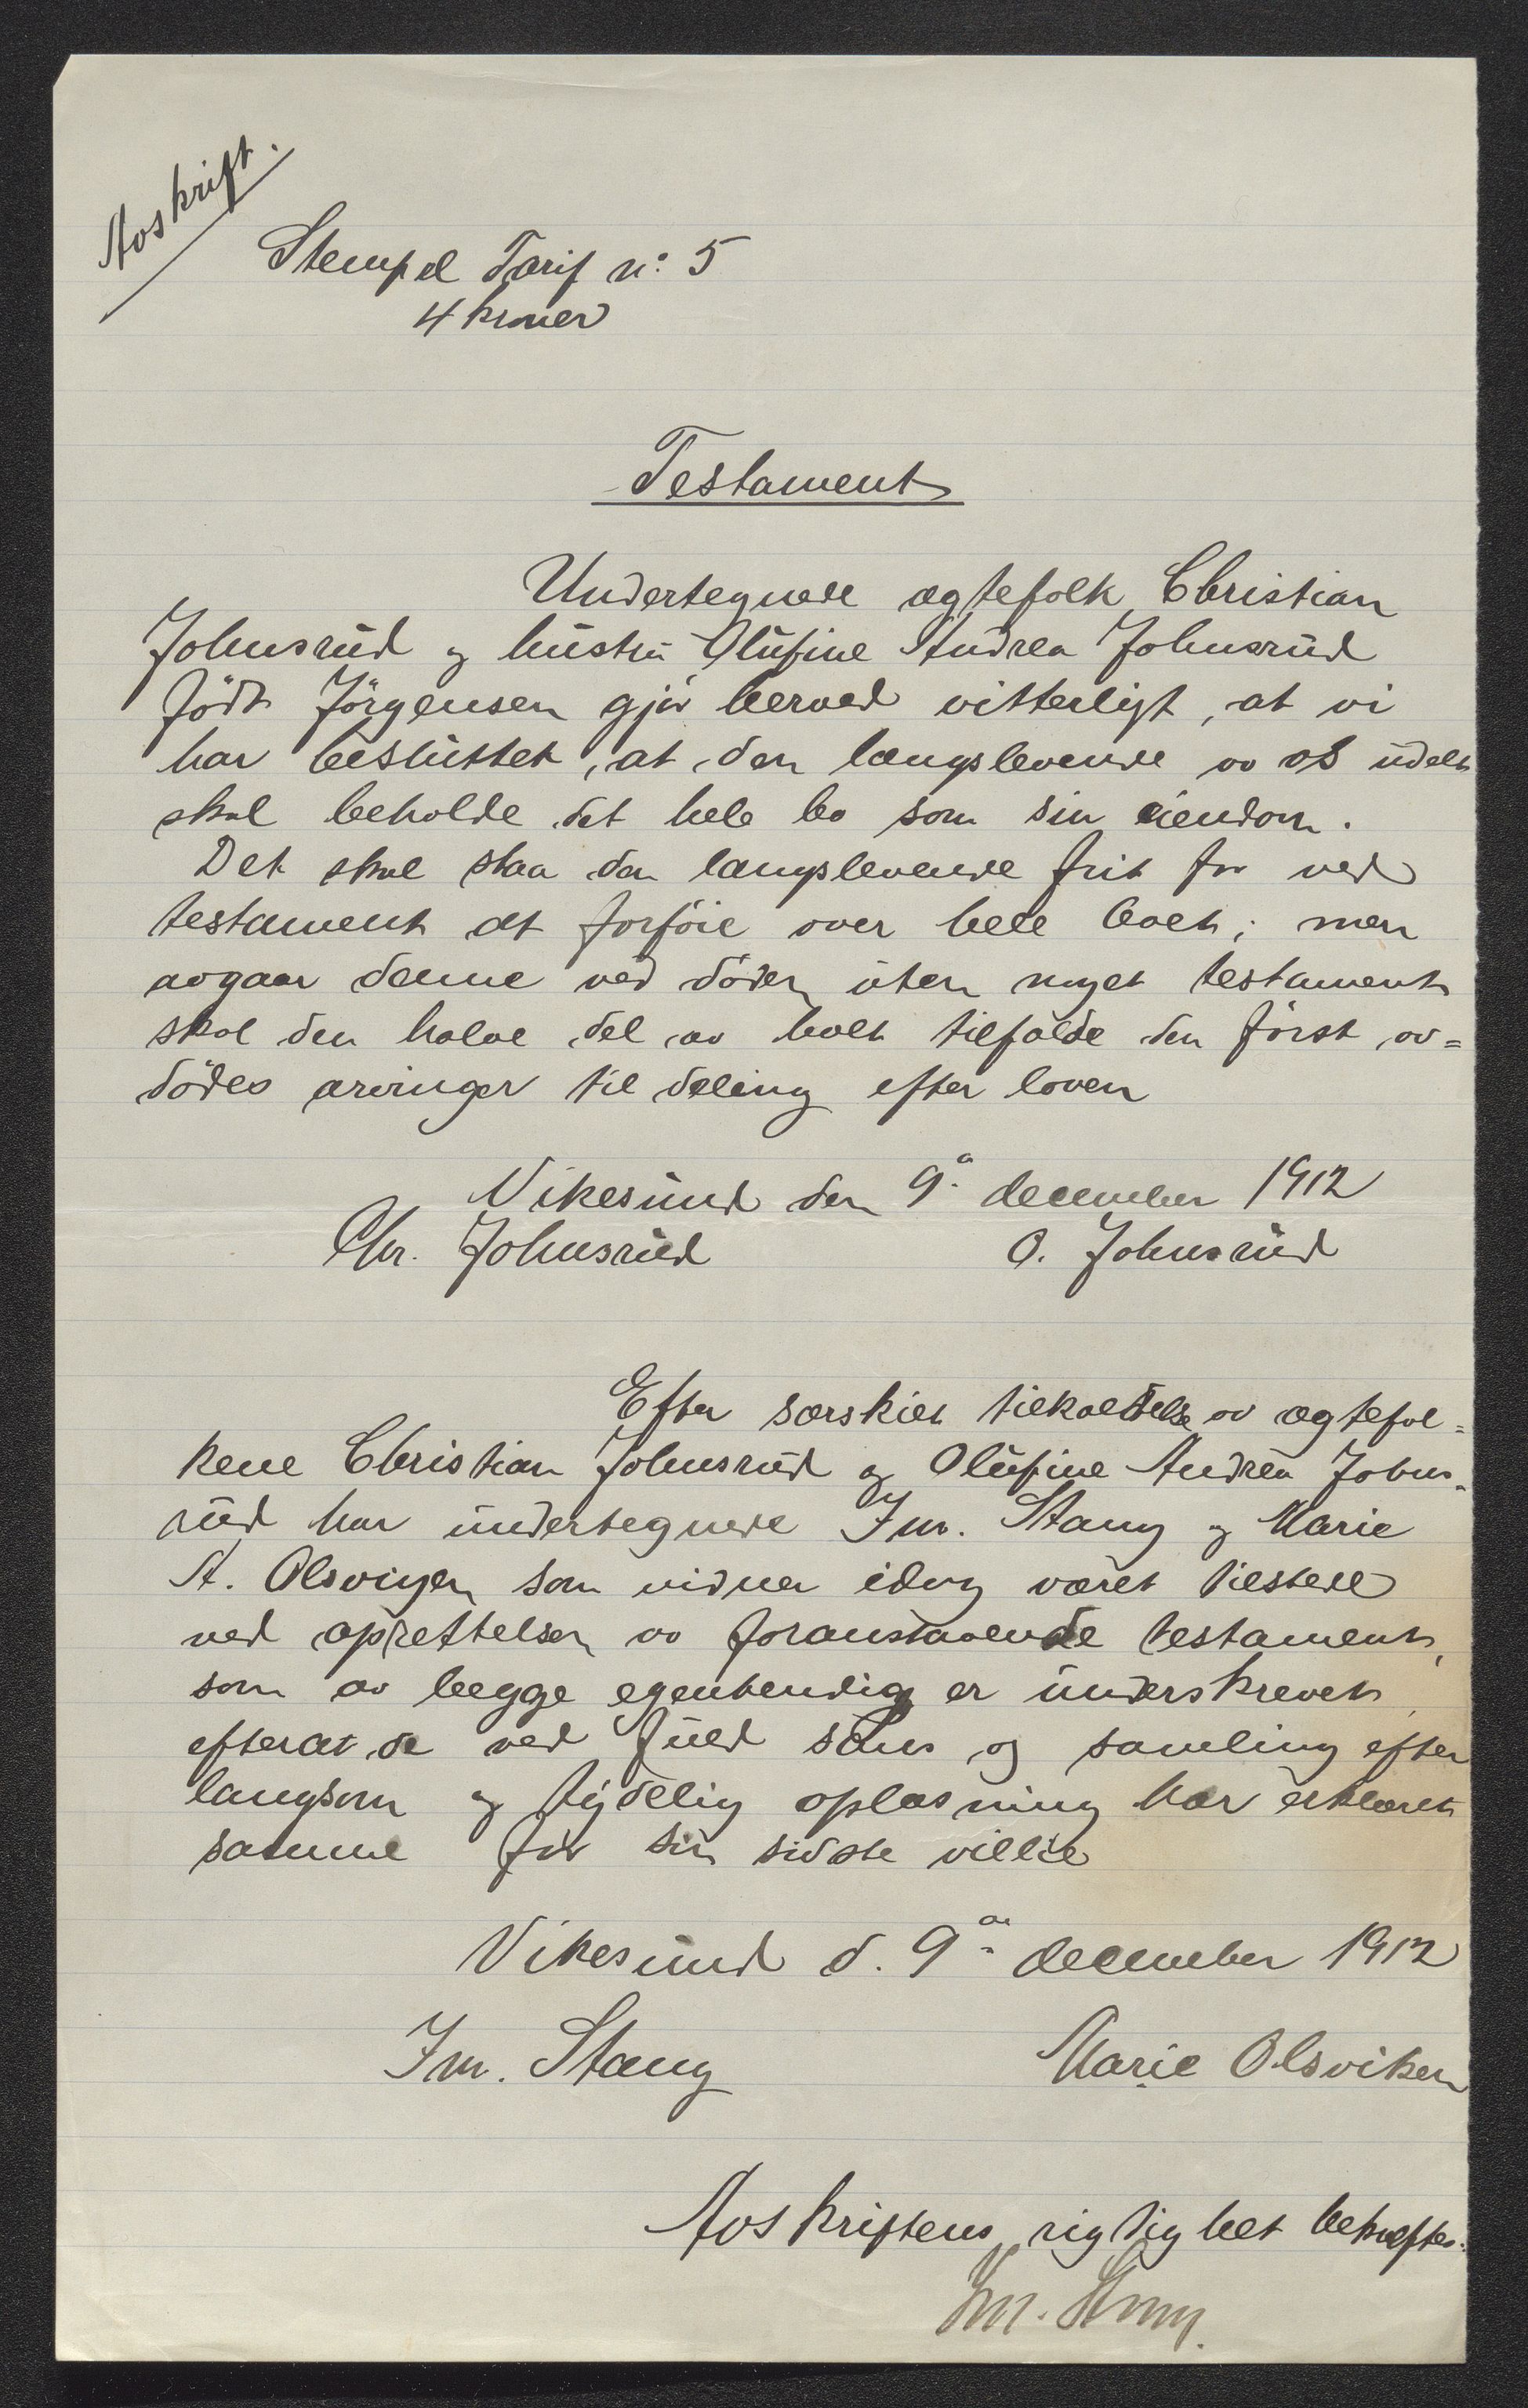 Avskrift.
Stempel Tarif no: 5
4 kroner
Testament
Undertegnede egtefolk Christian
Johnsrud og hustru Olufine Andrea Johnsrud
född Jörgensen gjör herved vitterligt, at vi
har besluttet, at den længslevende av os udelt
skal beholde det hele bo som sin eiendom.
Det skal staa den længslevende frit for ved
testament at forföie over hele boet; men
avgaar denne ved döden uten noget testament
skal den halve del av boet tilfalde den först av=
dödes arvinger til deling efter loven
Vikesund den 9de december 1912
Chr. Johnsrud O. Johnsrud
Efter særskilt tilkaldelse av egtefol=
kene Christian Johnsrud og Olufine Andrea Johns=
rud har undertegnede Im. Stang og Marie
A. Olsviken som vidner idag været tilstede
ved oprettelsen av foranstaaende testament,
som av begge egenhendig er underskrevet,
efterat de ved fuld sans og samling efter
langsom og tydelig oplæsning har erklæret
samme for sin sidste villie
Vikesund d. 9de december 1912
Im. Stang Marie Olsviken
Avskriftens rigtighet bekræftes:
Im. Stang.